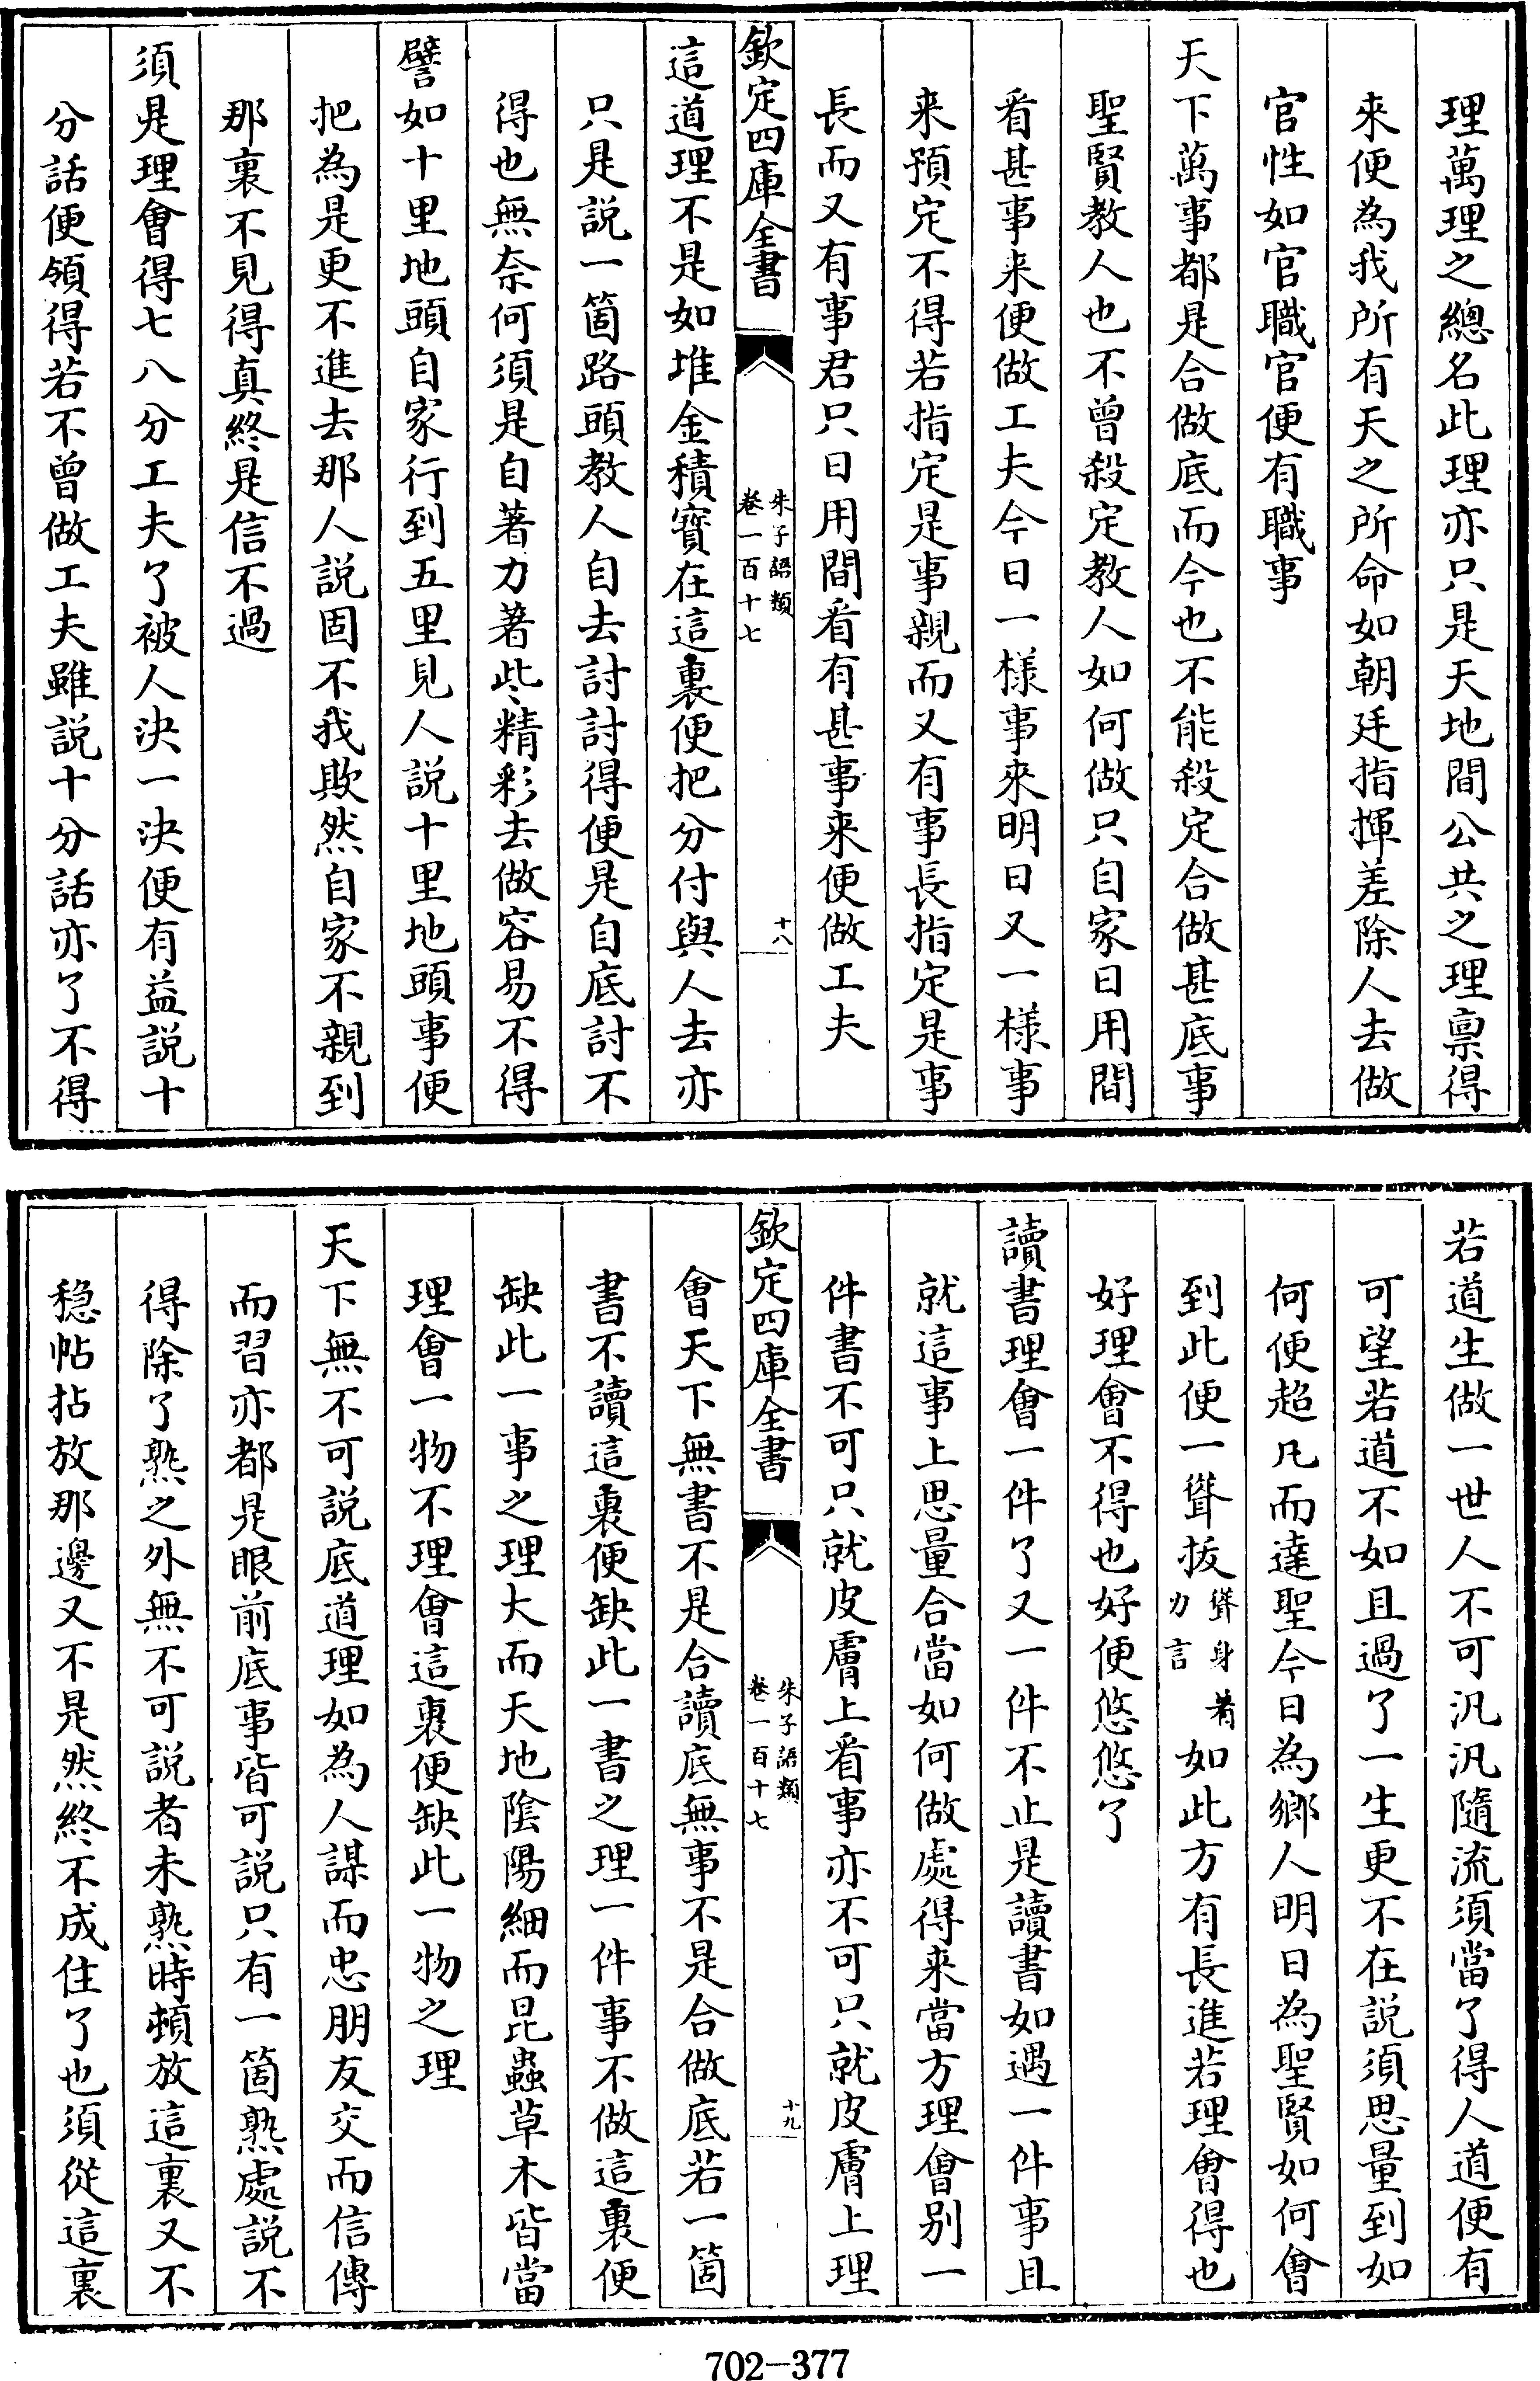 理萬理之總名此理亦只是天地間公共之理禀得
來便為我所有天之所命如朝廷指揮差除人去做
官性如官職官便有職事
天下萬事都是合做底而今也不能殺定合做甚底事
聖賢教人也不曾殺定教人如何做只自家日用間
看甚事来便做工夫今日一様事來明日又一様事
来預定不得若指定是事親而又有事長指定是事
長而又有事君只日用間看有甚事来便做工夫
欽定四庫全書
朱子語類
卷一百十七
十八
這道理不是如堆金積寳在這裏便把分付與人去亦
只是説一箇路頭教人自去討討得便是自底討不
得也無奈何須是自著力著些精彩去做容易不得
譬如十里地頭自家行到五里見人説十里地頭事便
把為是更不進去那人説固不我欺然自家不親到
那裏不見得真終是信不過
須是理會得七八分工夫了被人決一決便有益説十
分話便領得若不曾做工夫雖説十分話亦了不得
若道生做一世人不可汎汎隨流須當了得人道便有
可望若道不如且過了一生更不在説須思量到如
何便超凡而達聖今日為鄉人明日為聖賢如何會
到此便一聳拔聳身著力言如此方有長進若理會得也
好理會不得也好便悠悠了
讀書理會一件了又一件不止是讀書如遇一件事且
就這事上思量合當如何做處得来當方理會别一
件書不可只就皮膚上看事亦不可只就皮膚上理
欽定四庫全書
朱子語類
卷一百十七
十九
會天下無書不是合讀底無事不是合做底若一箇
書不讀這裏便缺此一書之理一件事不做這裏便
缺此一事之理大而天地隂陽細而昆蟲草木皆當
理會一物不理會這裏便缺此一物之理
天下無不可説底道理如為人謀而忠朋友交而信傳
而習亦都是眼前底事皆可説只有一箇熟處説不
得除了熟之外無不可説者未熟時頓放這裏又不
穏帖拈放那邊又不是然終不成住了也須從這裏
702-377